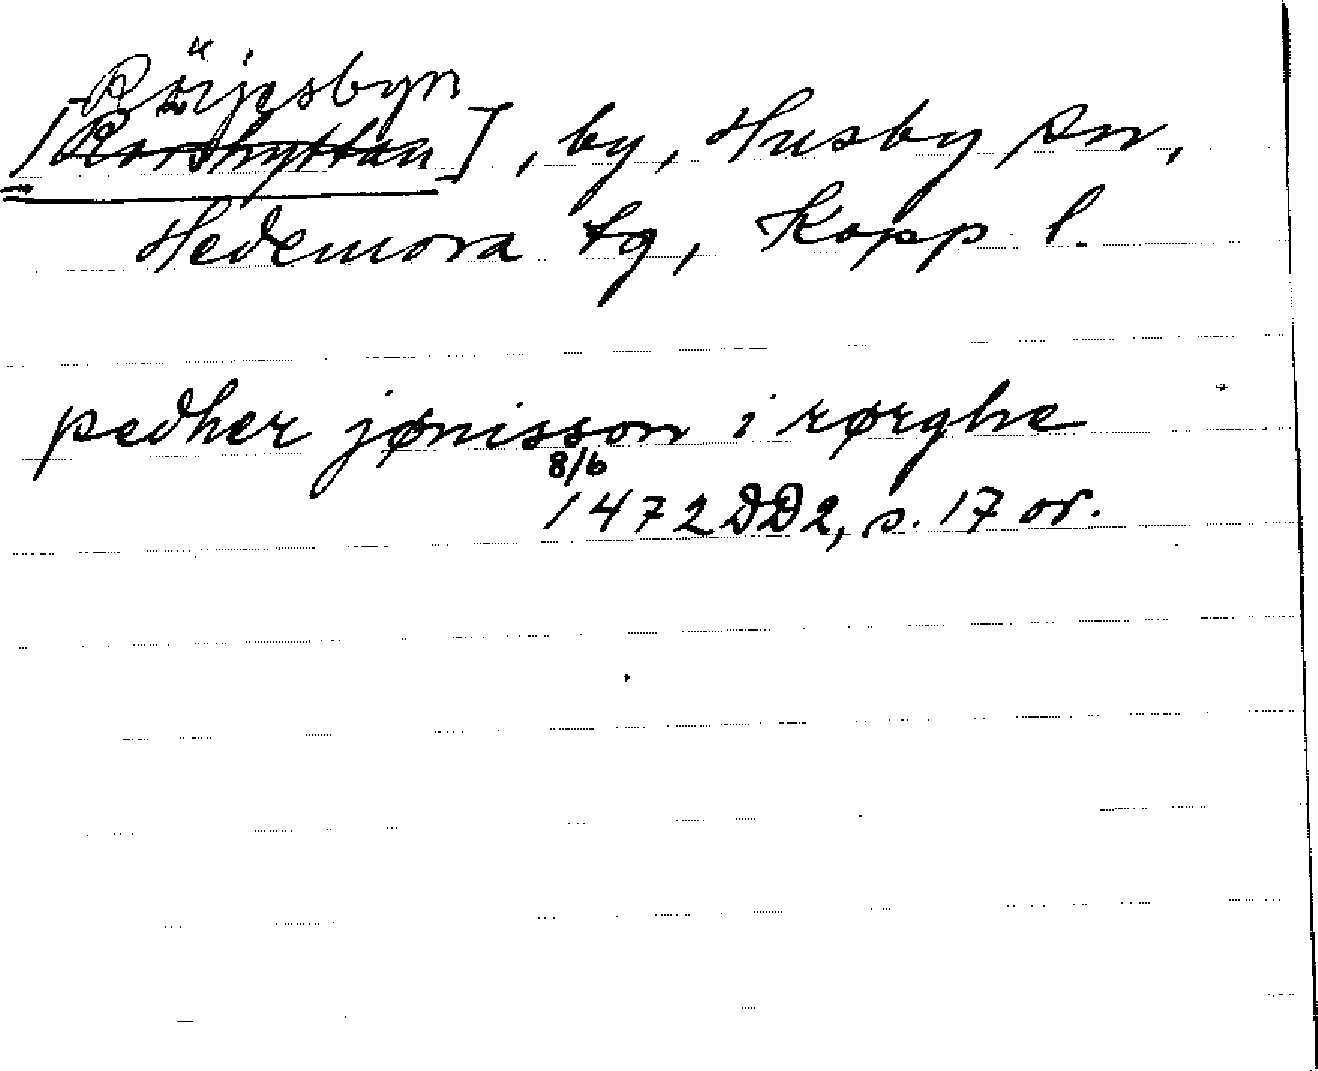 Rörjesbyn
[Rorshyttan], by, Husby sn,
Hedemora tg, Kopp l.
pedher jønisson i rørghe
8/6
1472 DD2, s. 17 or.